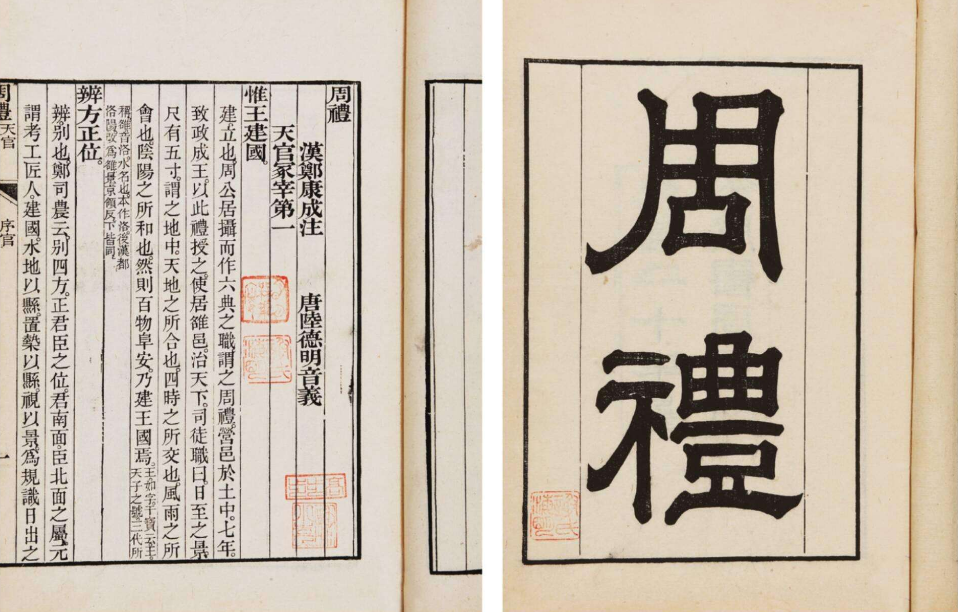 周禮
周禮
漢鄭康成注　唐陸德明音義
天官冢宰第一
惟王建國。
建立也。周公居攝而作六典之職。謂之周禮。營邑於土中。七年。
致政成王。以此禮授之。使居雒邑。治天下。司徒職曰。日至之景
尺有五寸。謂之地中。天地之所合也。四時之所交也。風雨之所
會也。陰陽之所和也。然則百物阜安。乃建王國焉。王如字。干寶云。王
天子之號。三代所
稱。雒音洛。水名也。本作洛。後漢都
洛陽。改爲雒。景京領反。下皆同。
辨方正位。
辨。別也。鄭司農云。別四方。正君臣之位。君南面。臣北面之屬。元
謂考工匠人。建國。水地以縣。置槷以縣。視以景。爲規識日出之
周禮　天官　序官　一